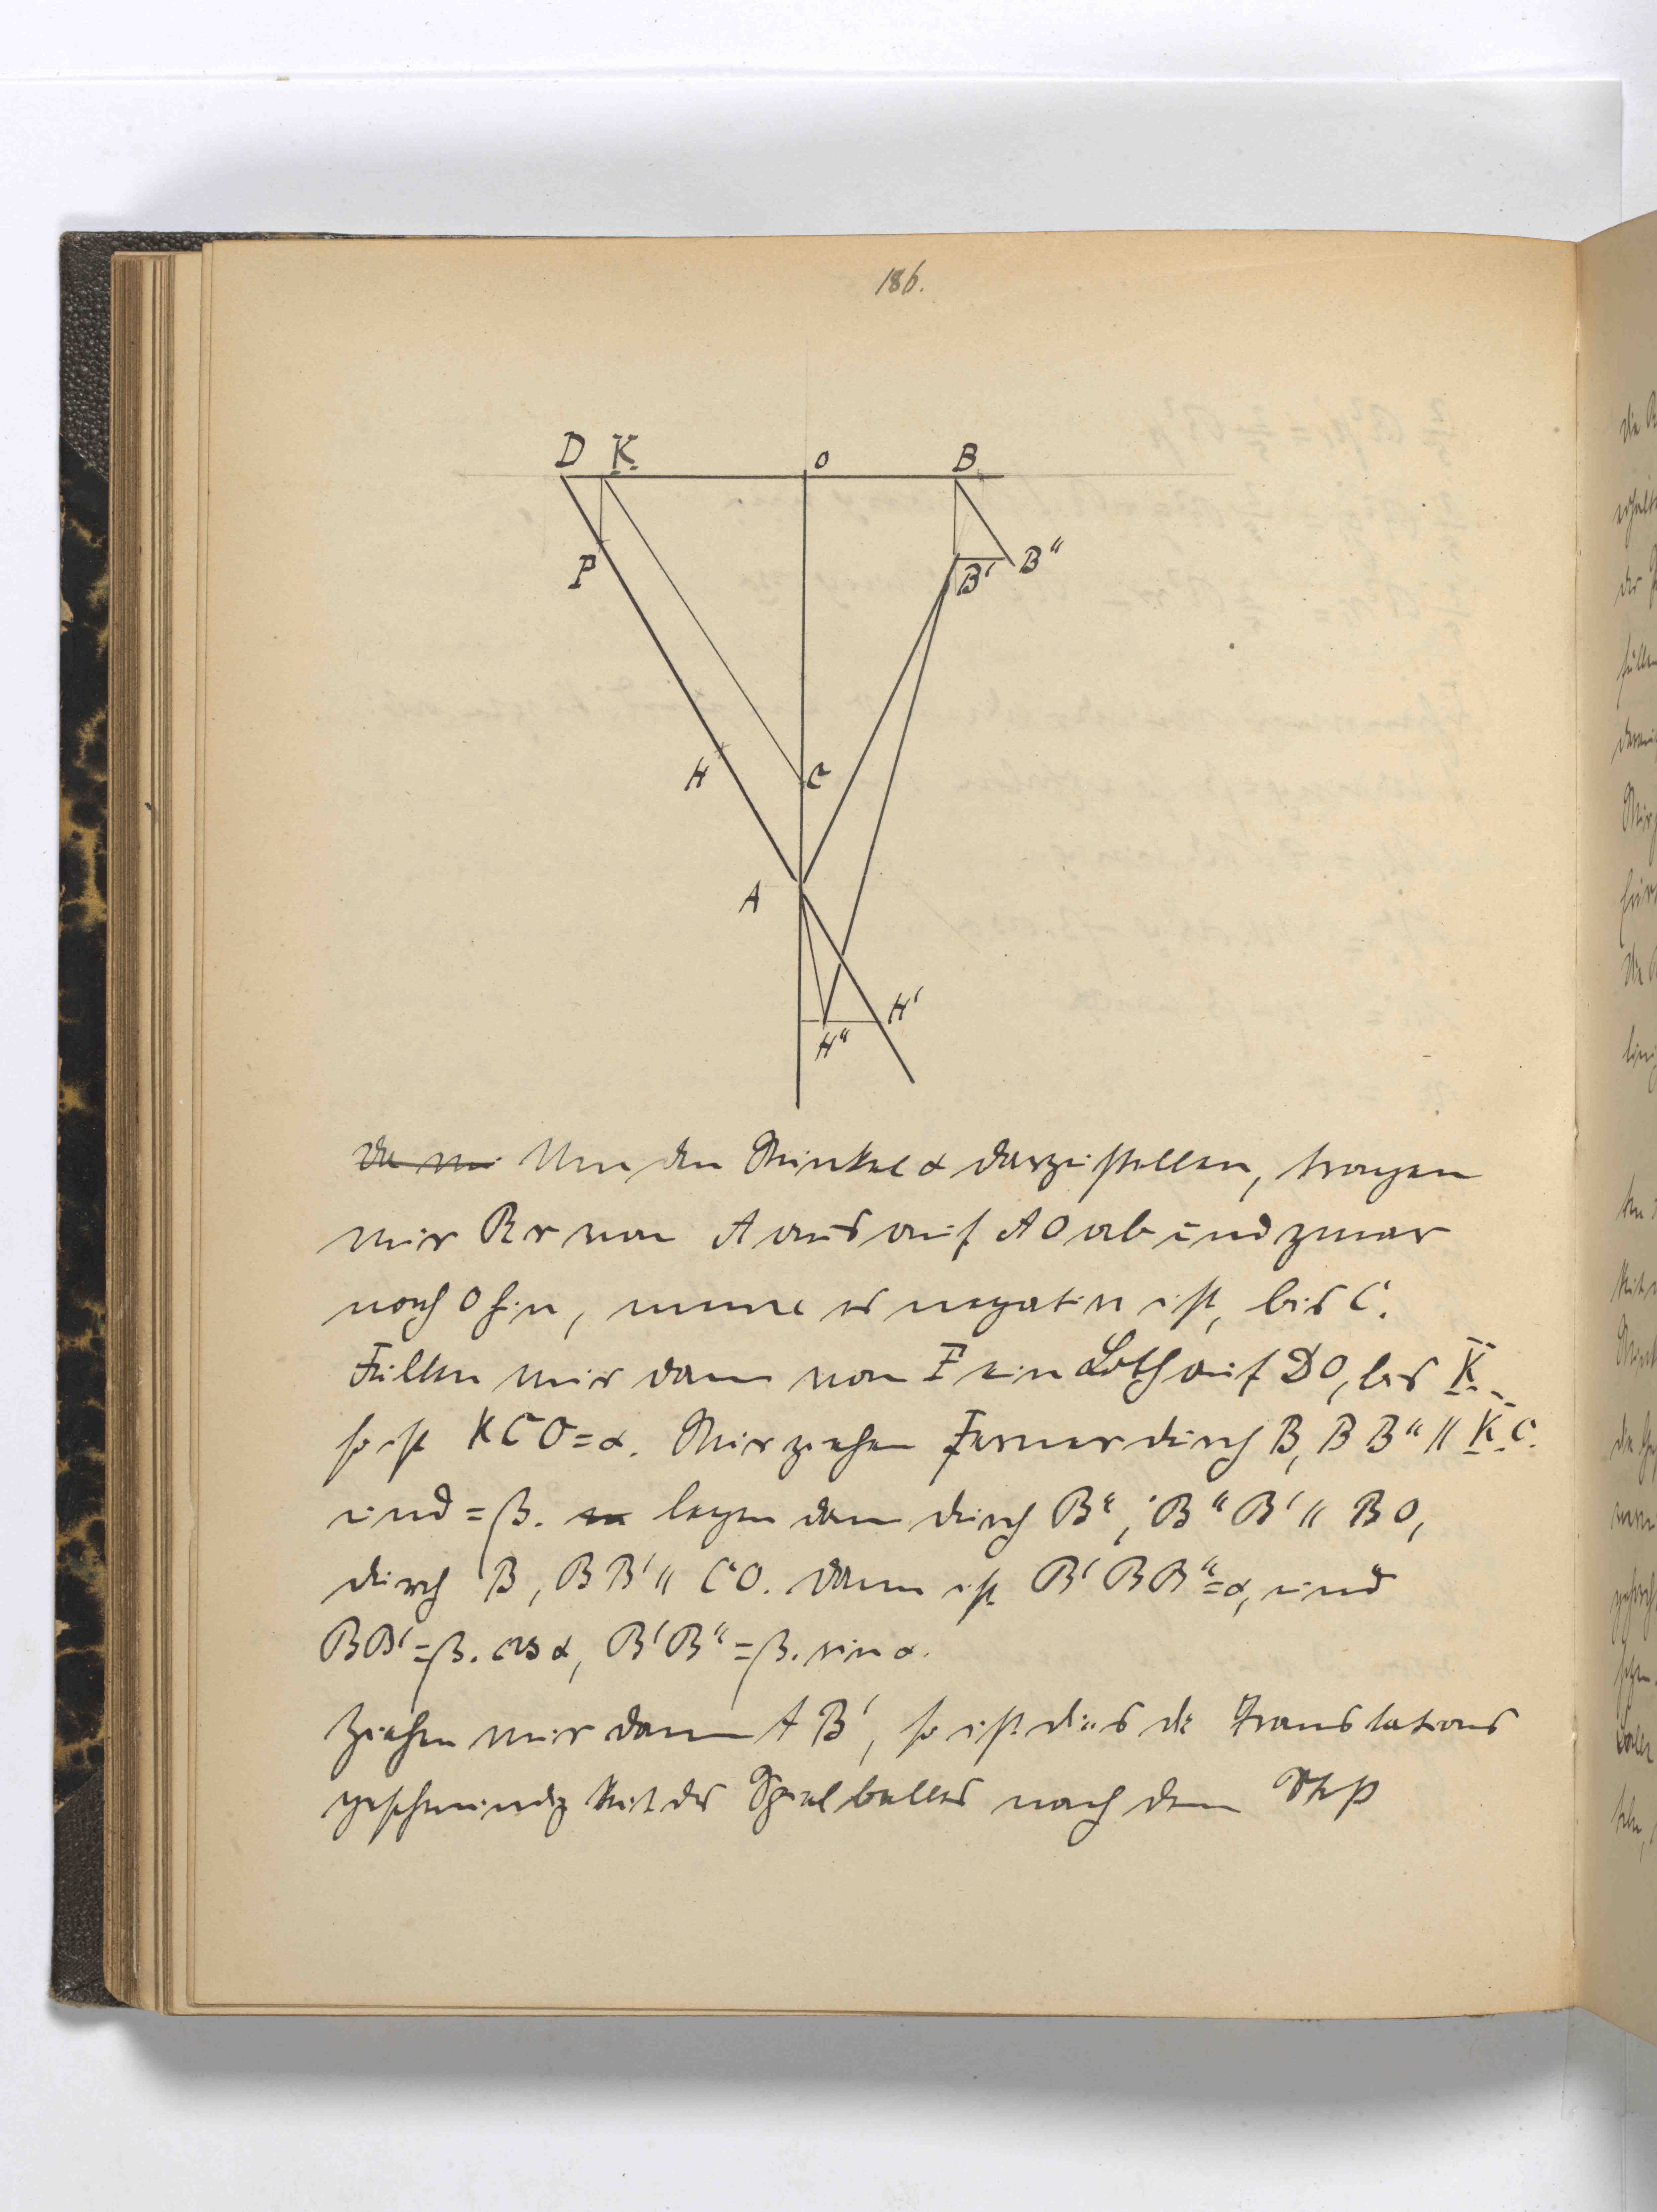 186.
D K O B
P B' B"
H C
A
H" H'
Um den Winkel α darzustellen, tragen
wir Rr von A aus auf AO ab und zwar
nach O hin, wenn es negativ ist, bis C.
Fällen wir dann von P ein Loth auf DO, bis K.
so ist KCO=α. Wir ziehen ferner durch B, BB" || K.C.
und =β. legen dann durch B", B"B' || BO,
durch B, BB' || CO. Dann ist B'BB"=α, und
BB'=β. cos α, B'B"=β. sin α.
Ziehen wir dann AB', so ist dies die Translations
geschwindigkeit des Spielballes nach dem Stoß